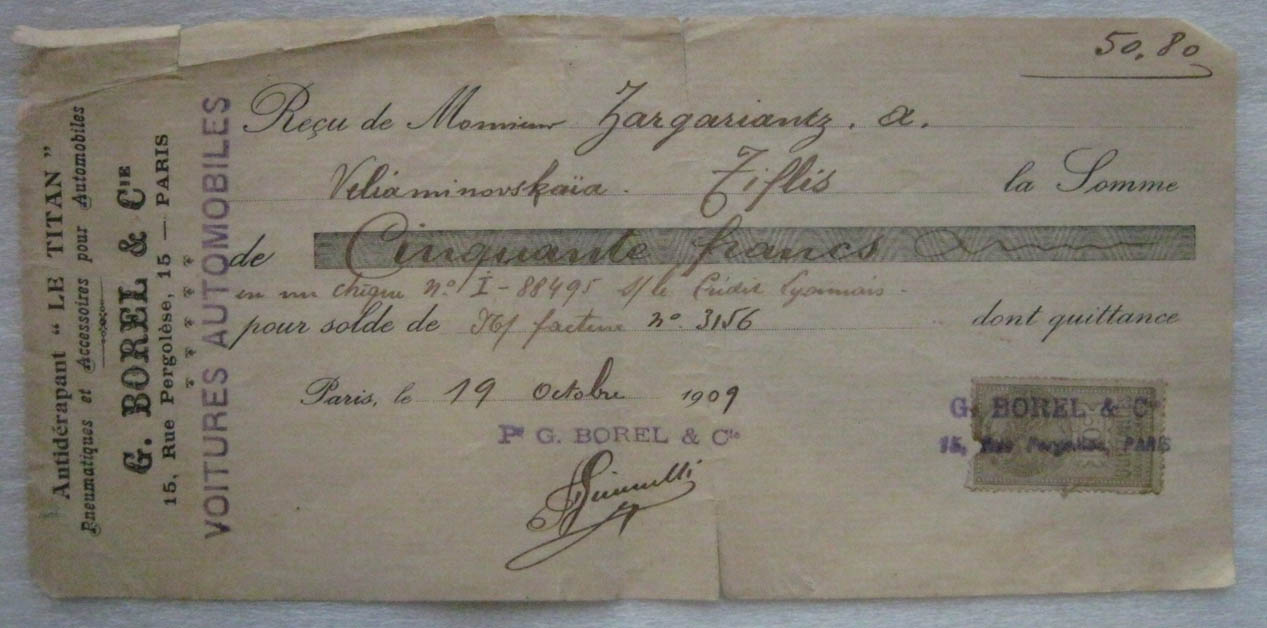 50,80
Antidérapant "LE TITAN"
Pneumatiques et Accessoires pour Automobiles
G. BOREL & CIE
15, Rue Pergolèse, 15 — PARIS
VOITURES AUTOMOBILES
Reçu de Monsieur Zargariantz. A.
Veliaminovskaïa. Tiflis la Somme
de Cinquante francs
en un chèque No. I-88495 s/ le Crédit Lyonnais.
pour solde de N/ facture No. 3156 dont quittance
Paris, le 19 Octobre 1909
Pr G. BOREL & Cie
G. BOREL & Cie
15, Rue Pergolèse, PARIS